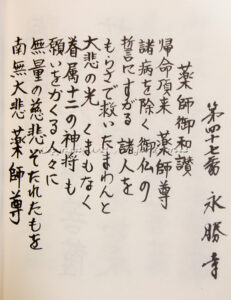 第四十七番 永勝寺
薬師御和讃
帰命頂来 薬師尊
諸病を除く御仏の
誓にすがる 諸人を
もらさで救いたまわんと
大悲の光 くまもなく
眷属十二の神将も
願いをかくる 人々に
無量の慈悲ぞたれたもを
南無大悲 薬師尊